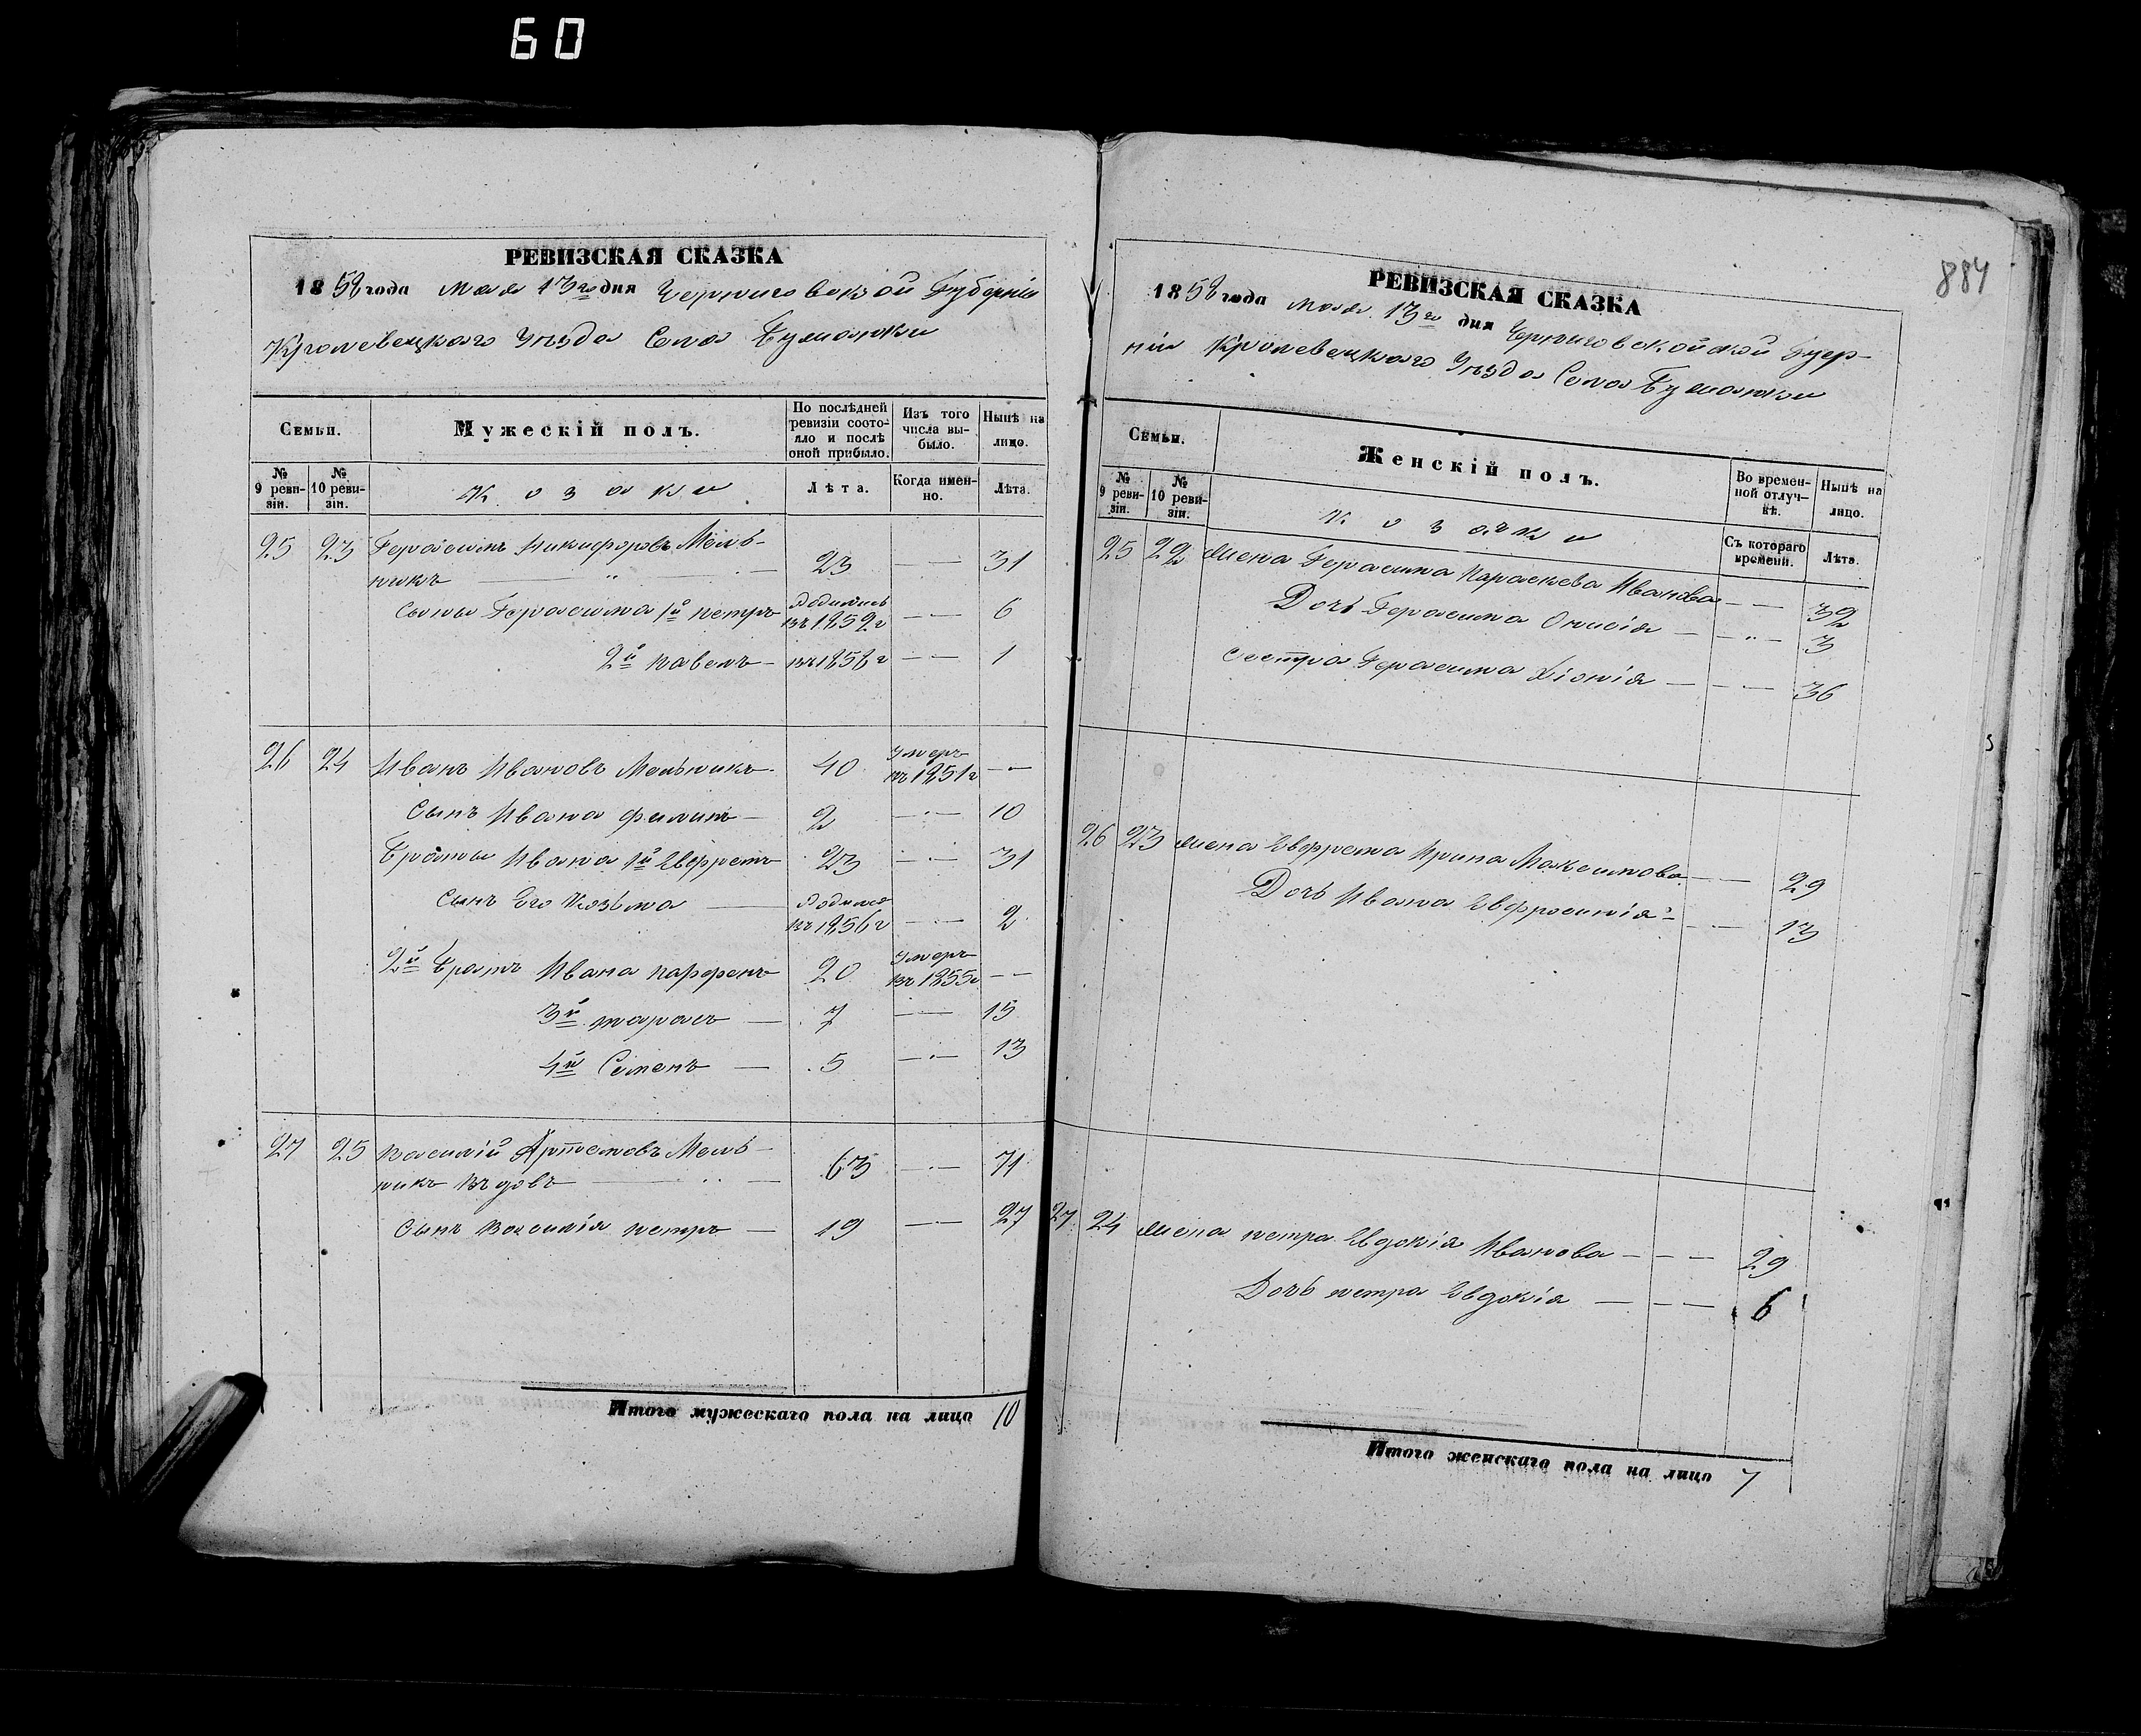 60
РЕВИЗСКАЯ СКАЗКА
1858 года мая 13го дня Черниговской Губерніи
Кролевецкаго Уѣзда Села Буманки
Семьи.
Мужескій полъ.
По послѣдней ревизіи состояло и послѣ оной прибыло.
Изъ того числа выбыло.
Нынѣ на лицо.
№ 9 ревизіи.
№ 10 ревизіи.
Козаки
Лѣта.
Когда именно.
Лѣта.
25 23 Герасимъ Никифоровъ Мель-
никъ — " — 23 — 31
Сыны Герасима 1й петръ родились въ 1852г — 6
2й павелъ — въ 1856г — 1
26 24 Иванъ Ивановъ Мельникъ 40 Умеръ въ 1851г —
Сынъ Ивана филипъ — 2 — 10
Браты Ивана 1й Евфремъ 23 — 31
Сынъ Его Козьма — родился въ 1856г — 2
2й Братъ Ивана парфенъ 20 Умеръ въ 1855г —
3й тарасъ — 7 — 15
4й Семенъ — 5 — 13
27 25 василій Артемовъ Мель-
никъ вдовъ — 63 — 71
Сынъ василія петръ — 19 — 27
Итого мужескаго пола на лицо 10
884
РЕВИЗСКАЯ СКАЗКА
1858 года мая 13го дня Черниговскойской Гуер-
ніи Кролевецкаго Уѣзда Села Буманки
Семьи.
Женскій полъ.
Во временной отлучкѣ.
Нынѣ на лицо.
№ 9 ревизіи.
№ 10 ревизіи.
Козачки
Съ котораго времени.
Лѣта.
25 22 жена Герасима параскева Иванова — 32
Дочь Герасима Онисія — " — 3
сестра Герасима Хіонія — 36
26 23 жена Евфрема Ирина Максимова — 29
Дочь Ивана Евфросинія — 13
27 24 жена петра Евдокія Иванова — 29
Дочь петра Евдокія — 6
Итого женскаго пола на лицо 7